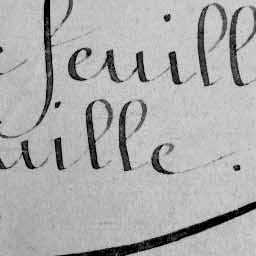 feuill
uille.